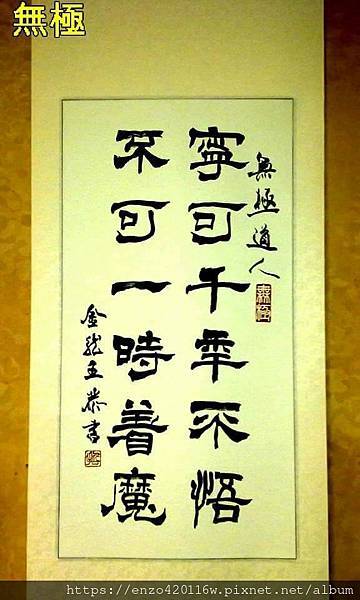 無極
無極道人
寧可千年不悟
不可一時着魔
金龍王恭書
https://enzo420116w.pixnet.net/album